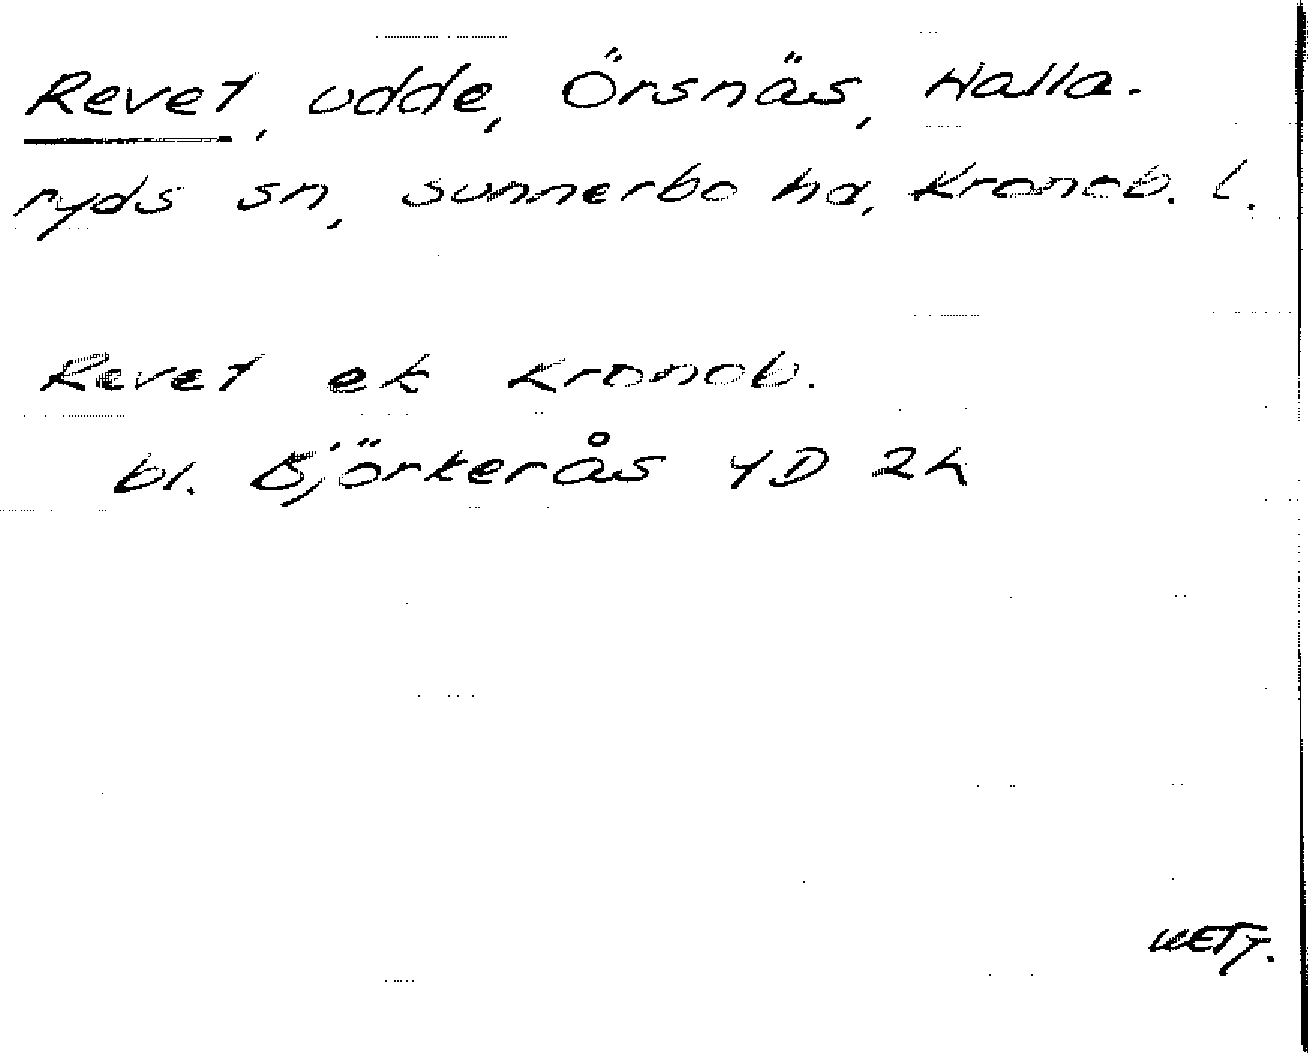 Revet, udde, Örsnäs, Halla.
ryds sn, Sunnerbo hd, Kronob. l.
Revet ek Kronob.
bl. Björkerås 4D 2h